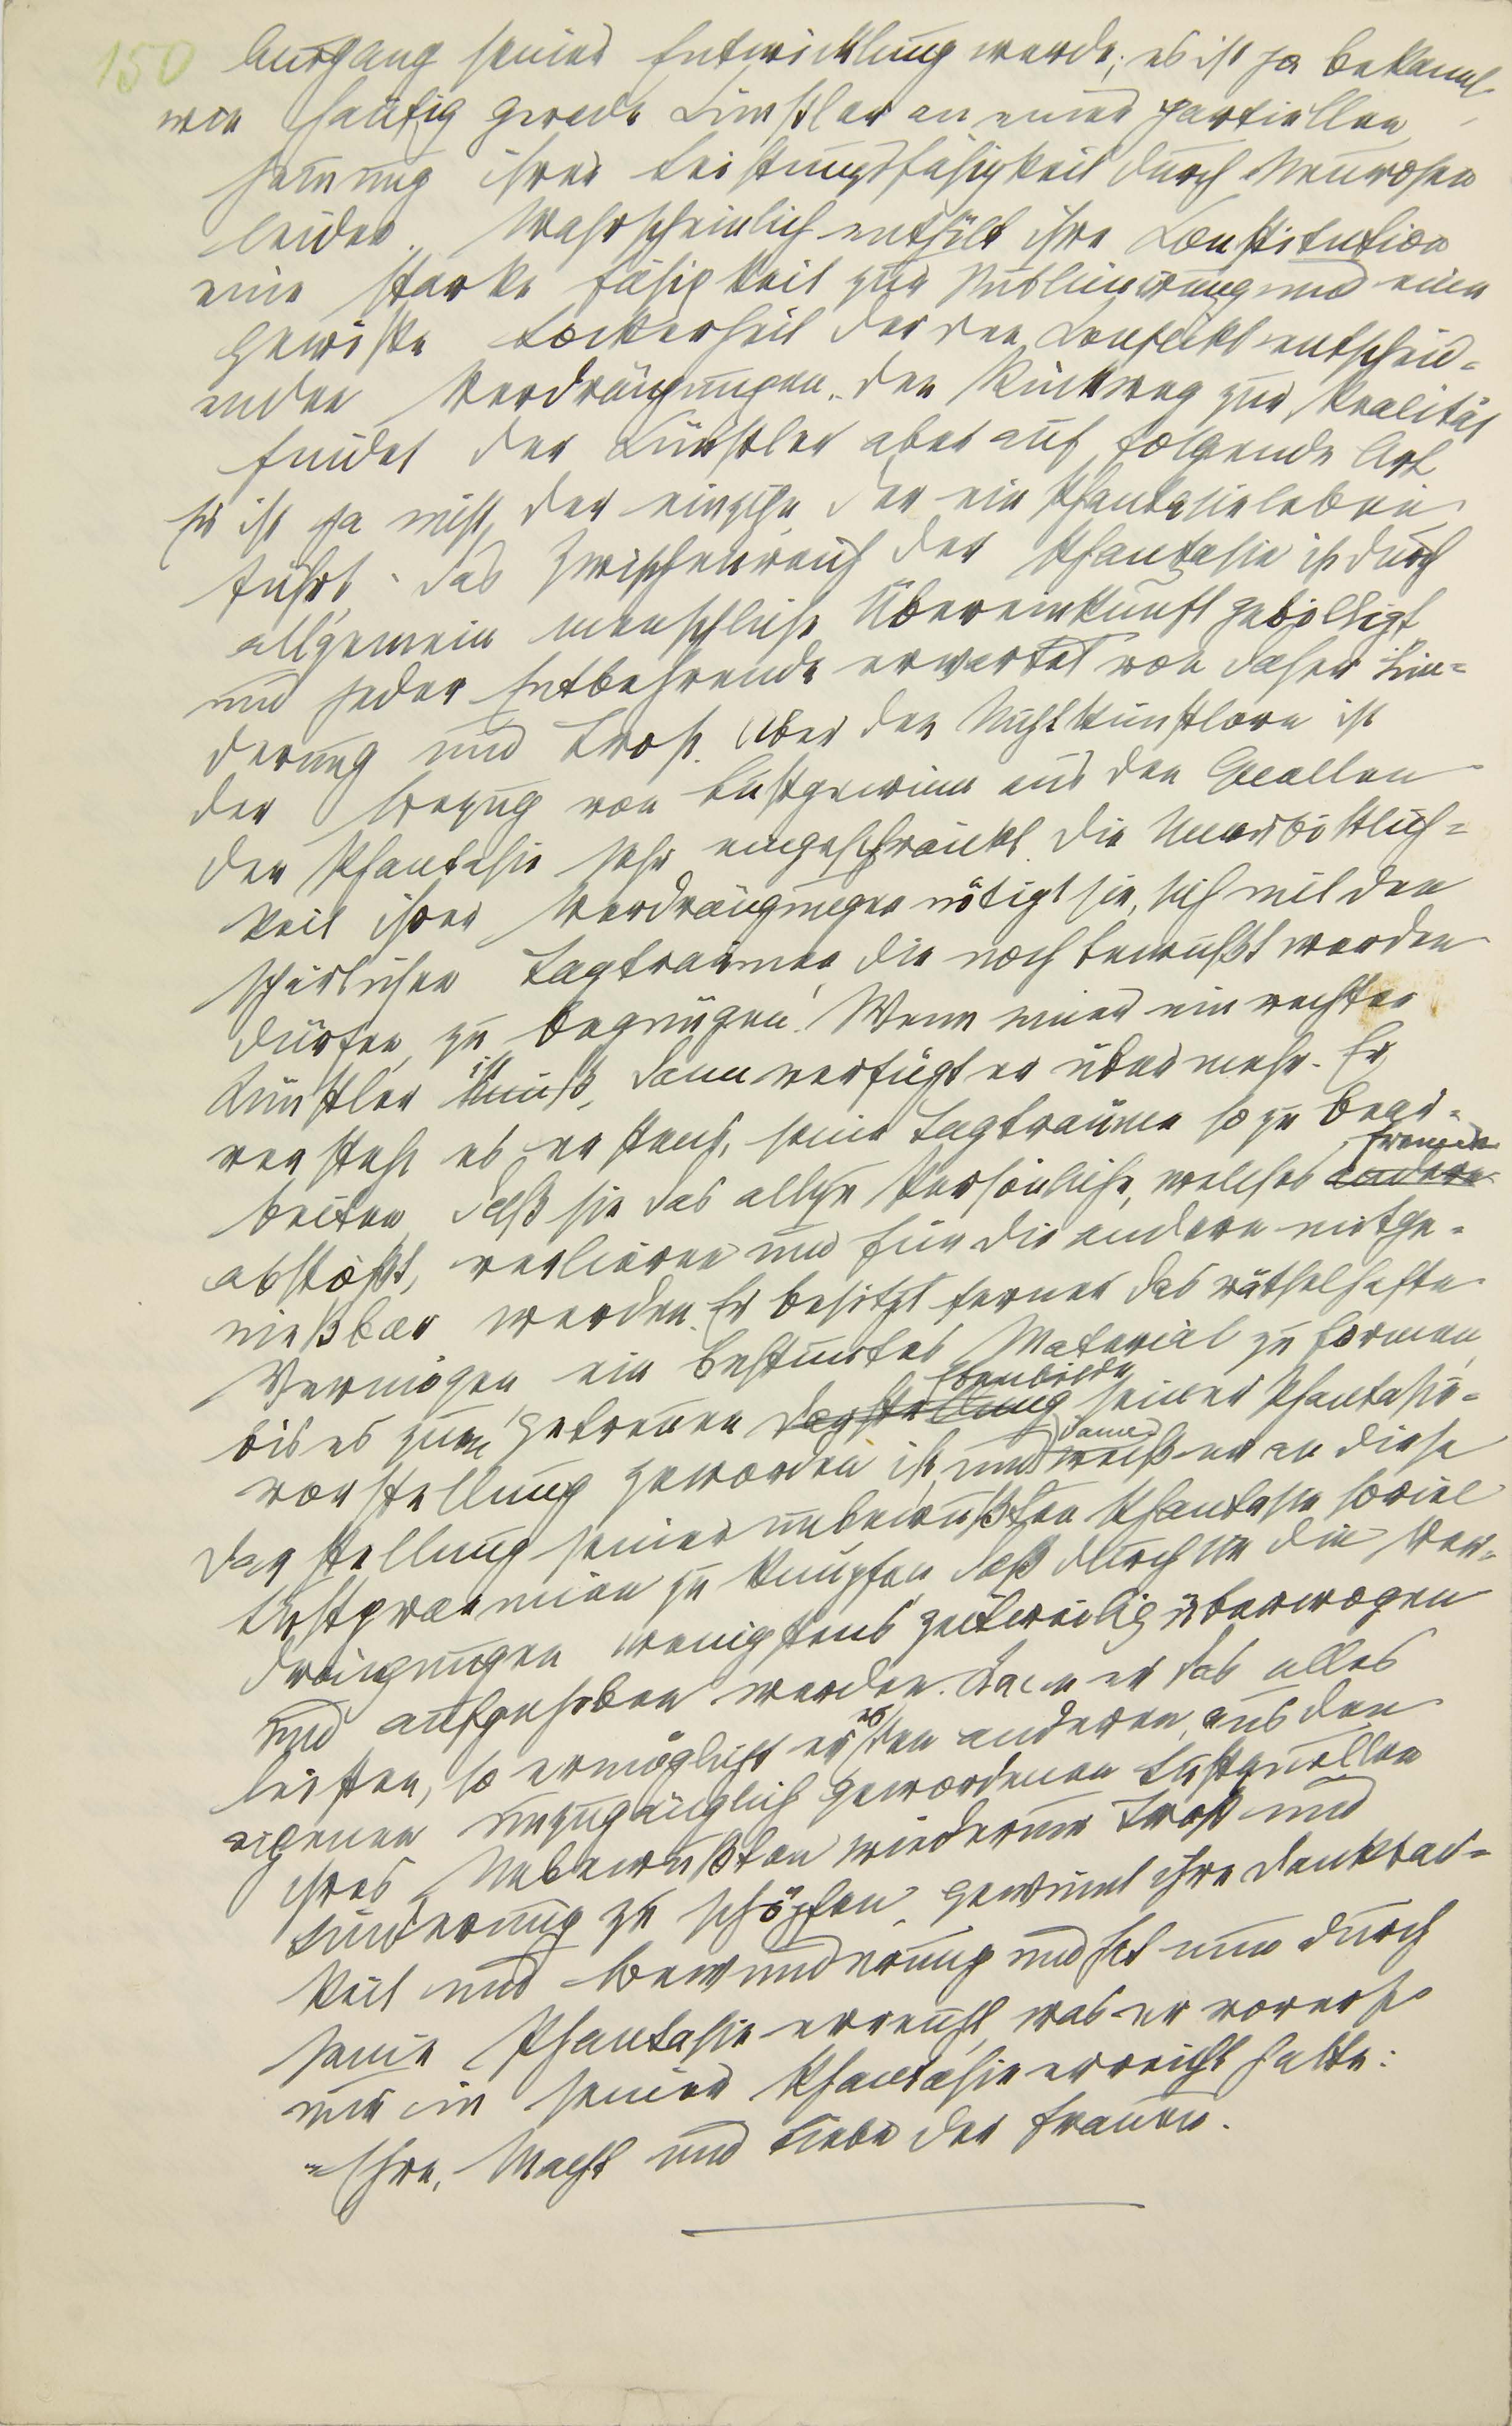 150 Ausgang seiner Entwicklung werde; es ist ja bekannt
wie häufig gerade Künstler an einer partiellen
Hemmung ihrer Leistungsfähigkeit durch Neurosen
leiden. Wahrscheinlich enthält ihre Konstitution
eine starke Fähigkeit zur Sublimierung und eine
gewisse Lockerheit der den Konflikt entscheid-
enden Verdrängungen. Den Rückweg zur Realität
findet der Künstler aber auf folgende Art
Er ist ja nicht der einzige der ein Phantasieleben
führt. Das Zwischenreich der Phantasie ist durch
allgemein menschliche Übereinkunft gebilligt
und jeder Entbehrende erwartet von daher Lin-
derung und Trost. Aber den Nichtkünstlern ist
der Bezug von Lustgewinn aus den Quellen
der Phantasie sehr eingeschränkt. Die Unerbittlich-
keit ihrer Verdrängungen nötigt sie, sich mit den
spärlichen Tagträumen, die noch bewußt werden
dürfen, zu begnügen. Wenn einer ein rechter
Künstler ist, dann verfügt er über mehr. Er
versteht es erstens, seine Tagträume so zu bear-
beiten, daß sie das allzu Persönliche, welches andere Fremde
abstößt, verlieren und für die andern mitge-
nießbar werden. Er besitzt ferner das rätselhafte
Vermögen ein bestimmtes Material zu formen,
bis es zum getreuen Darstellung Ebenbilde seiner Phantasie-
vorstellung geworden ist, und dann weiß er an diese
Darstellung seiner unbewußten Phantasie soviel
Lustpraemien zu knüpfen daß durch sie die Ver-
drängungen wenigstens zeitweilig überwogen
und aufgehoben werden. Kann er das alles
leisten, so ermöglicht er es den anderen, aus den
eigenen unzugänglich gewordenen Lustquellen
ihres Unbewußten wiederum Trost und
Linderung zu schöpfen, gewinnt ihre Dankbar-
keit und Bewunderung und hat nun durch
seine Phantasie erreicht, was er vorerst
nur in seiner Phantasie erreicht hatte:
Ehre, Macht und Liebe der Frauen.